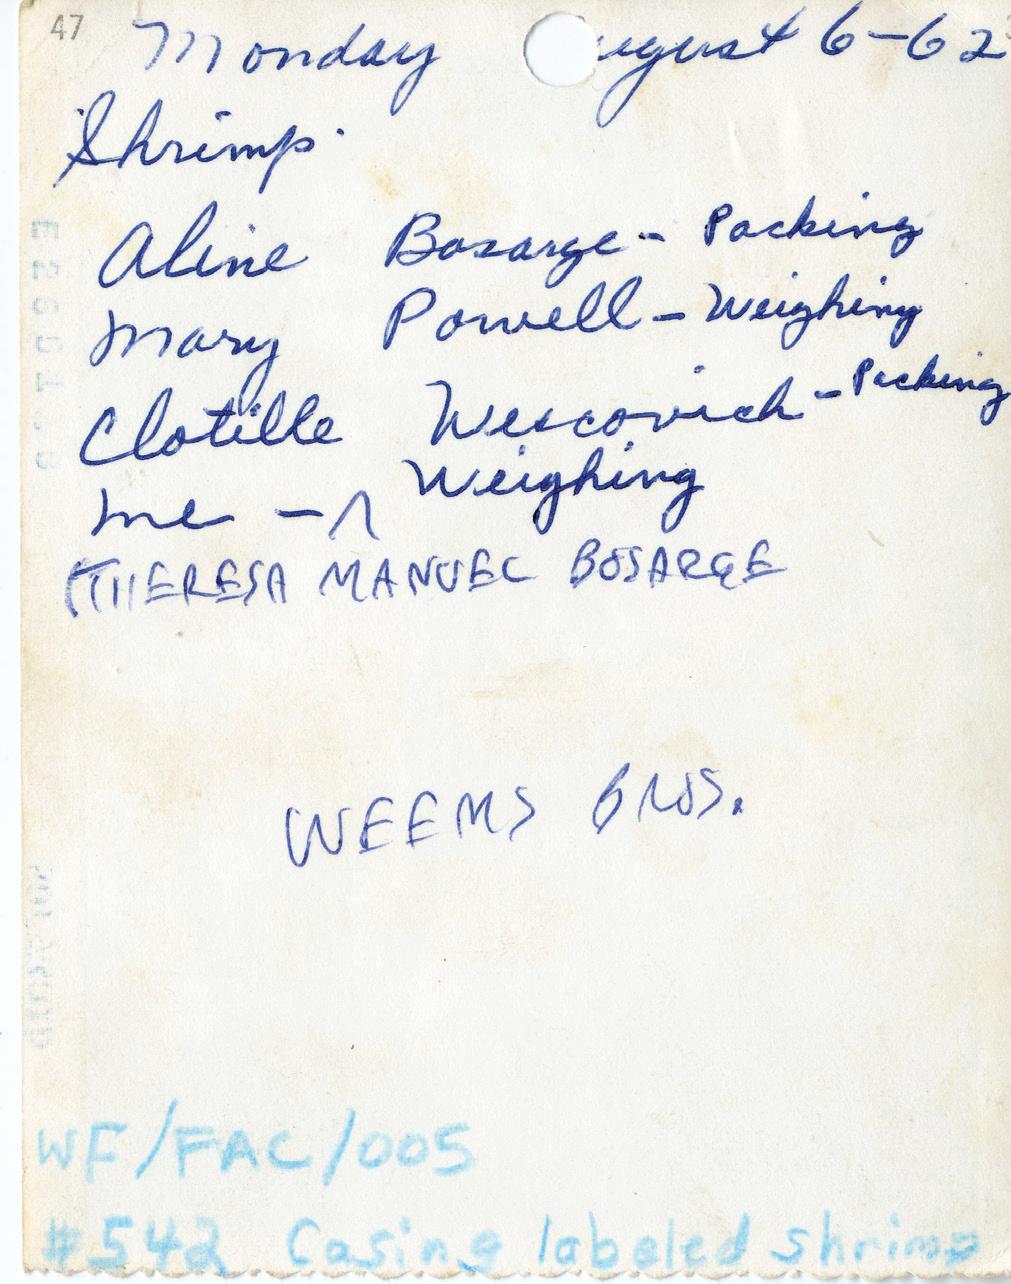 47
Monday ugust 6-62
Shrimp.
Aline Bosarge - Packing
Mary Powell - Weighing
Clotille Wescovich - Packing
me - ^ Weighing
(THERESA MANUEL BOSARGE
WEEMS BROS.
WF/FAC/005
#542 Casing labeled shrimp